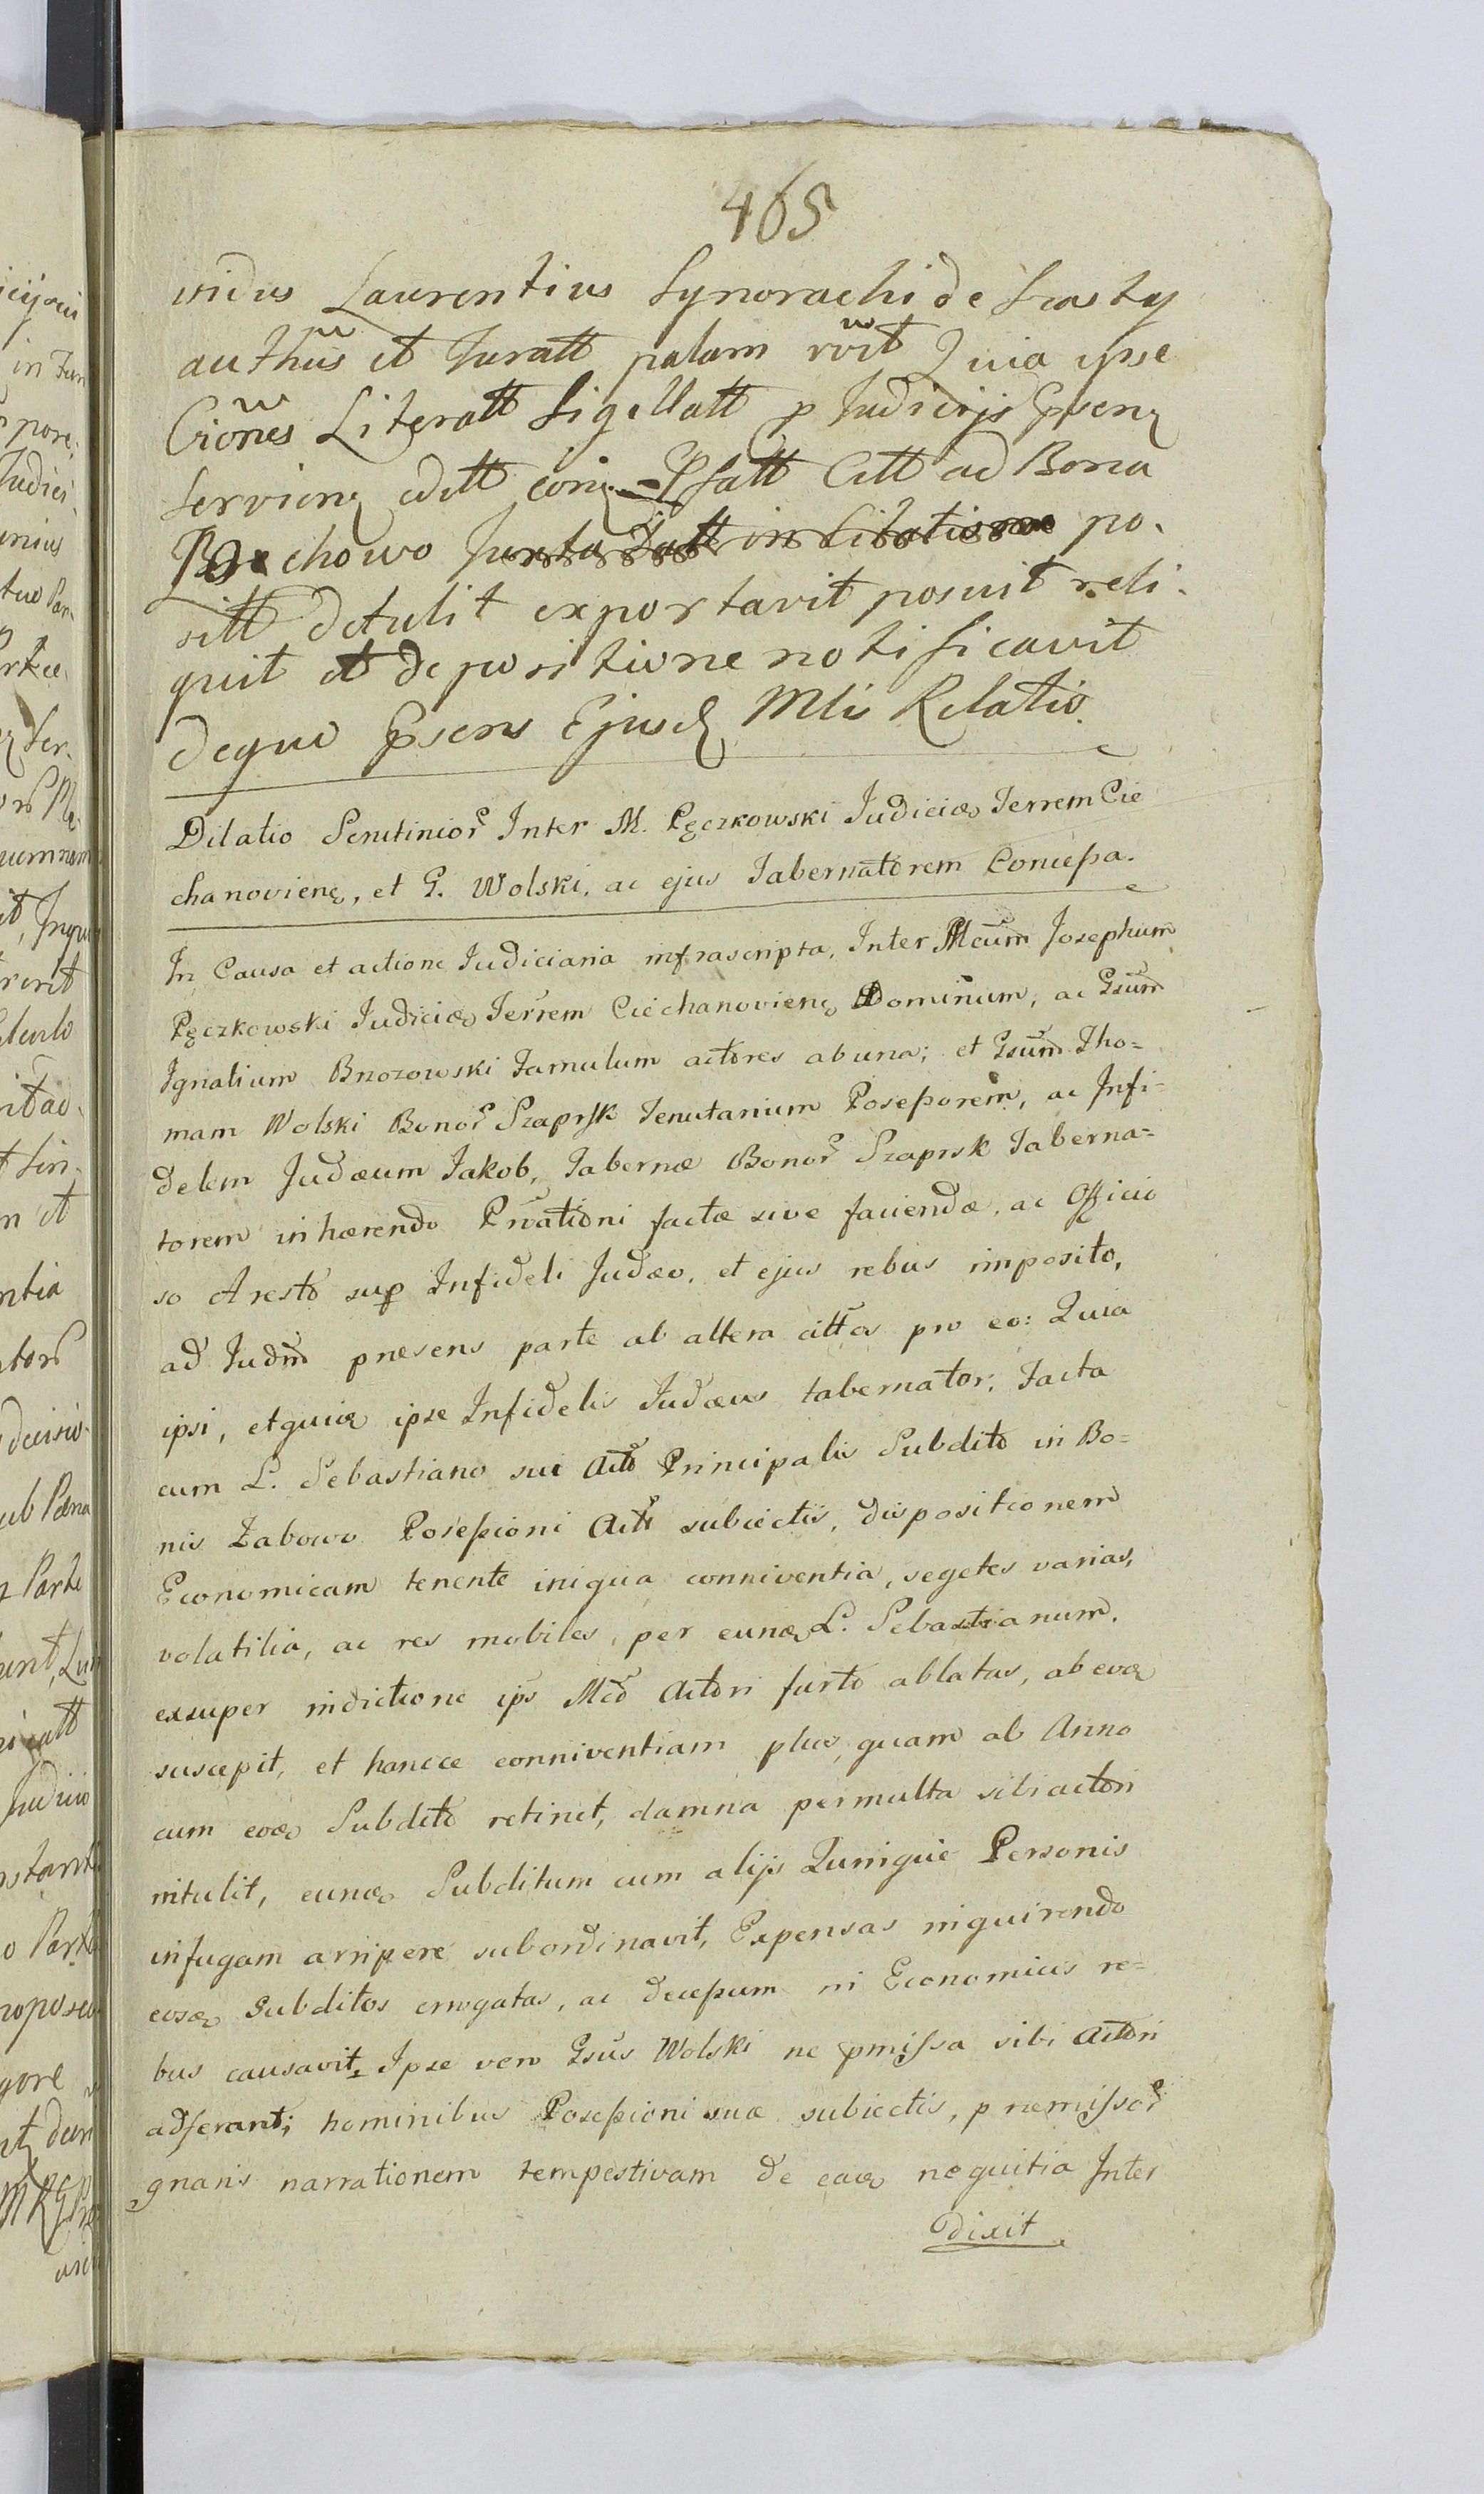 465
vidus Laurentius Synorachi de Srasty
authûs et Juratt palam rŏit Quia ipse
Cŏones Literatt Sigillatt p Judicijs Gpsenȝ
Servienȝ editt eorȝ Psatt Citt ad Bona
Bochowo Juxta in Citatione po-
sitt detulit exportavit posuit reli-
quit et de positione notificavit
deque Gpsens Ejusd Mli Relatio
Dilatio Scrutinior Inter M. Pęczkowski Judicȩ Terrem Cie
chanovienȩ, et G. Wolski, ac ejus Tabernatorem Concessa.
In Causa et actione Judiciaria infrascripta, Inter Mcum Josephum
Pęczkowski Judicȩ Terrem Ciechanovienȩ Dominum, ac Gsum
Ignatium Brzozowski Famulum actores ab una; et Gsum Tho=
mam Wolski Bonor Szaprsk Tenutarium Possessorem, ac Infi=
delem Judæum Jakob, Tabernæ Bonor Szaprsk Taberna=
torem inhærendo Prvationi factæ sive faciendæ, ac Officio
so Aresto sup Infideli Judæo, et ejus rebus imposito,
ad Judm præsens parte ab altera citta pro eo: Quia
ipsi, et quia ipse Infidelis Judæus tabernator, Facta
cum L. Sebastiano sui Acto Principalis Subdito in Bo=
nis Zabowo Possessioni Acti subiectis, dispositionem
Economicam tenente iniqua conniventia, segetes varias,
volatilia, ac res mobiles, per eunȩ L. Sebastianum,
exsuper indictione ips Mco Actori furto ablatas, ab eoȩ
suscepit, et hancce conniventiam plus quam ab Anno
cum eoȩ Subdito retinet, damna permulta sibi actori
intulit, eunȩ Subditum cum alijs Quinque Personis
in fugam arripere subordinavit, Expensas inquirendo
eosȩ Subditos erogatas, ac decessum in Economicis re=
bus causavit. Ipse vero Gsus Wolski ne pmissa sibi Actori
adferant; hominibus Possessioni suæ subiectis, præmissor
gnaris narrationem tempestivam de eaȩ nequitia Inter
dixit